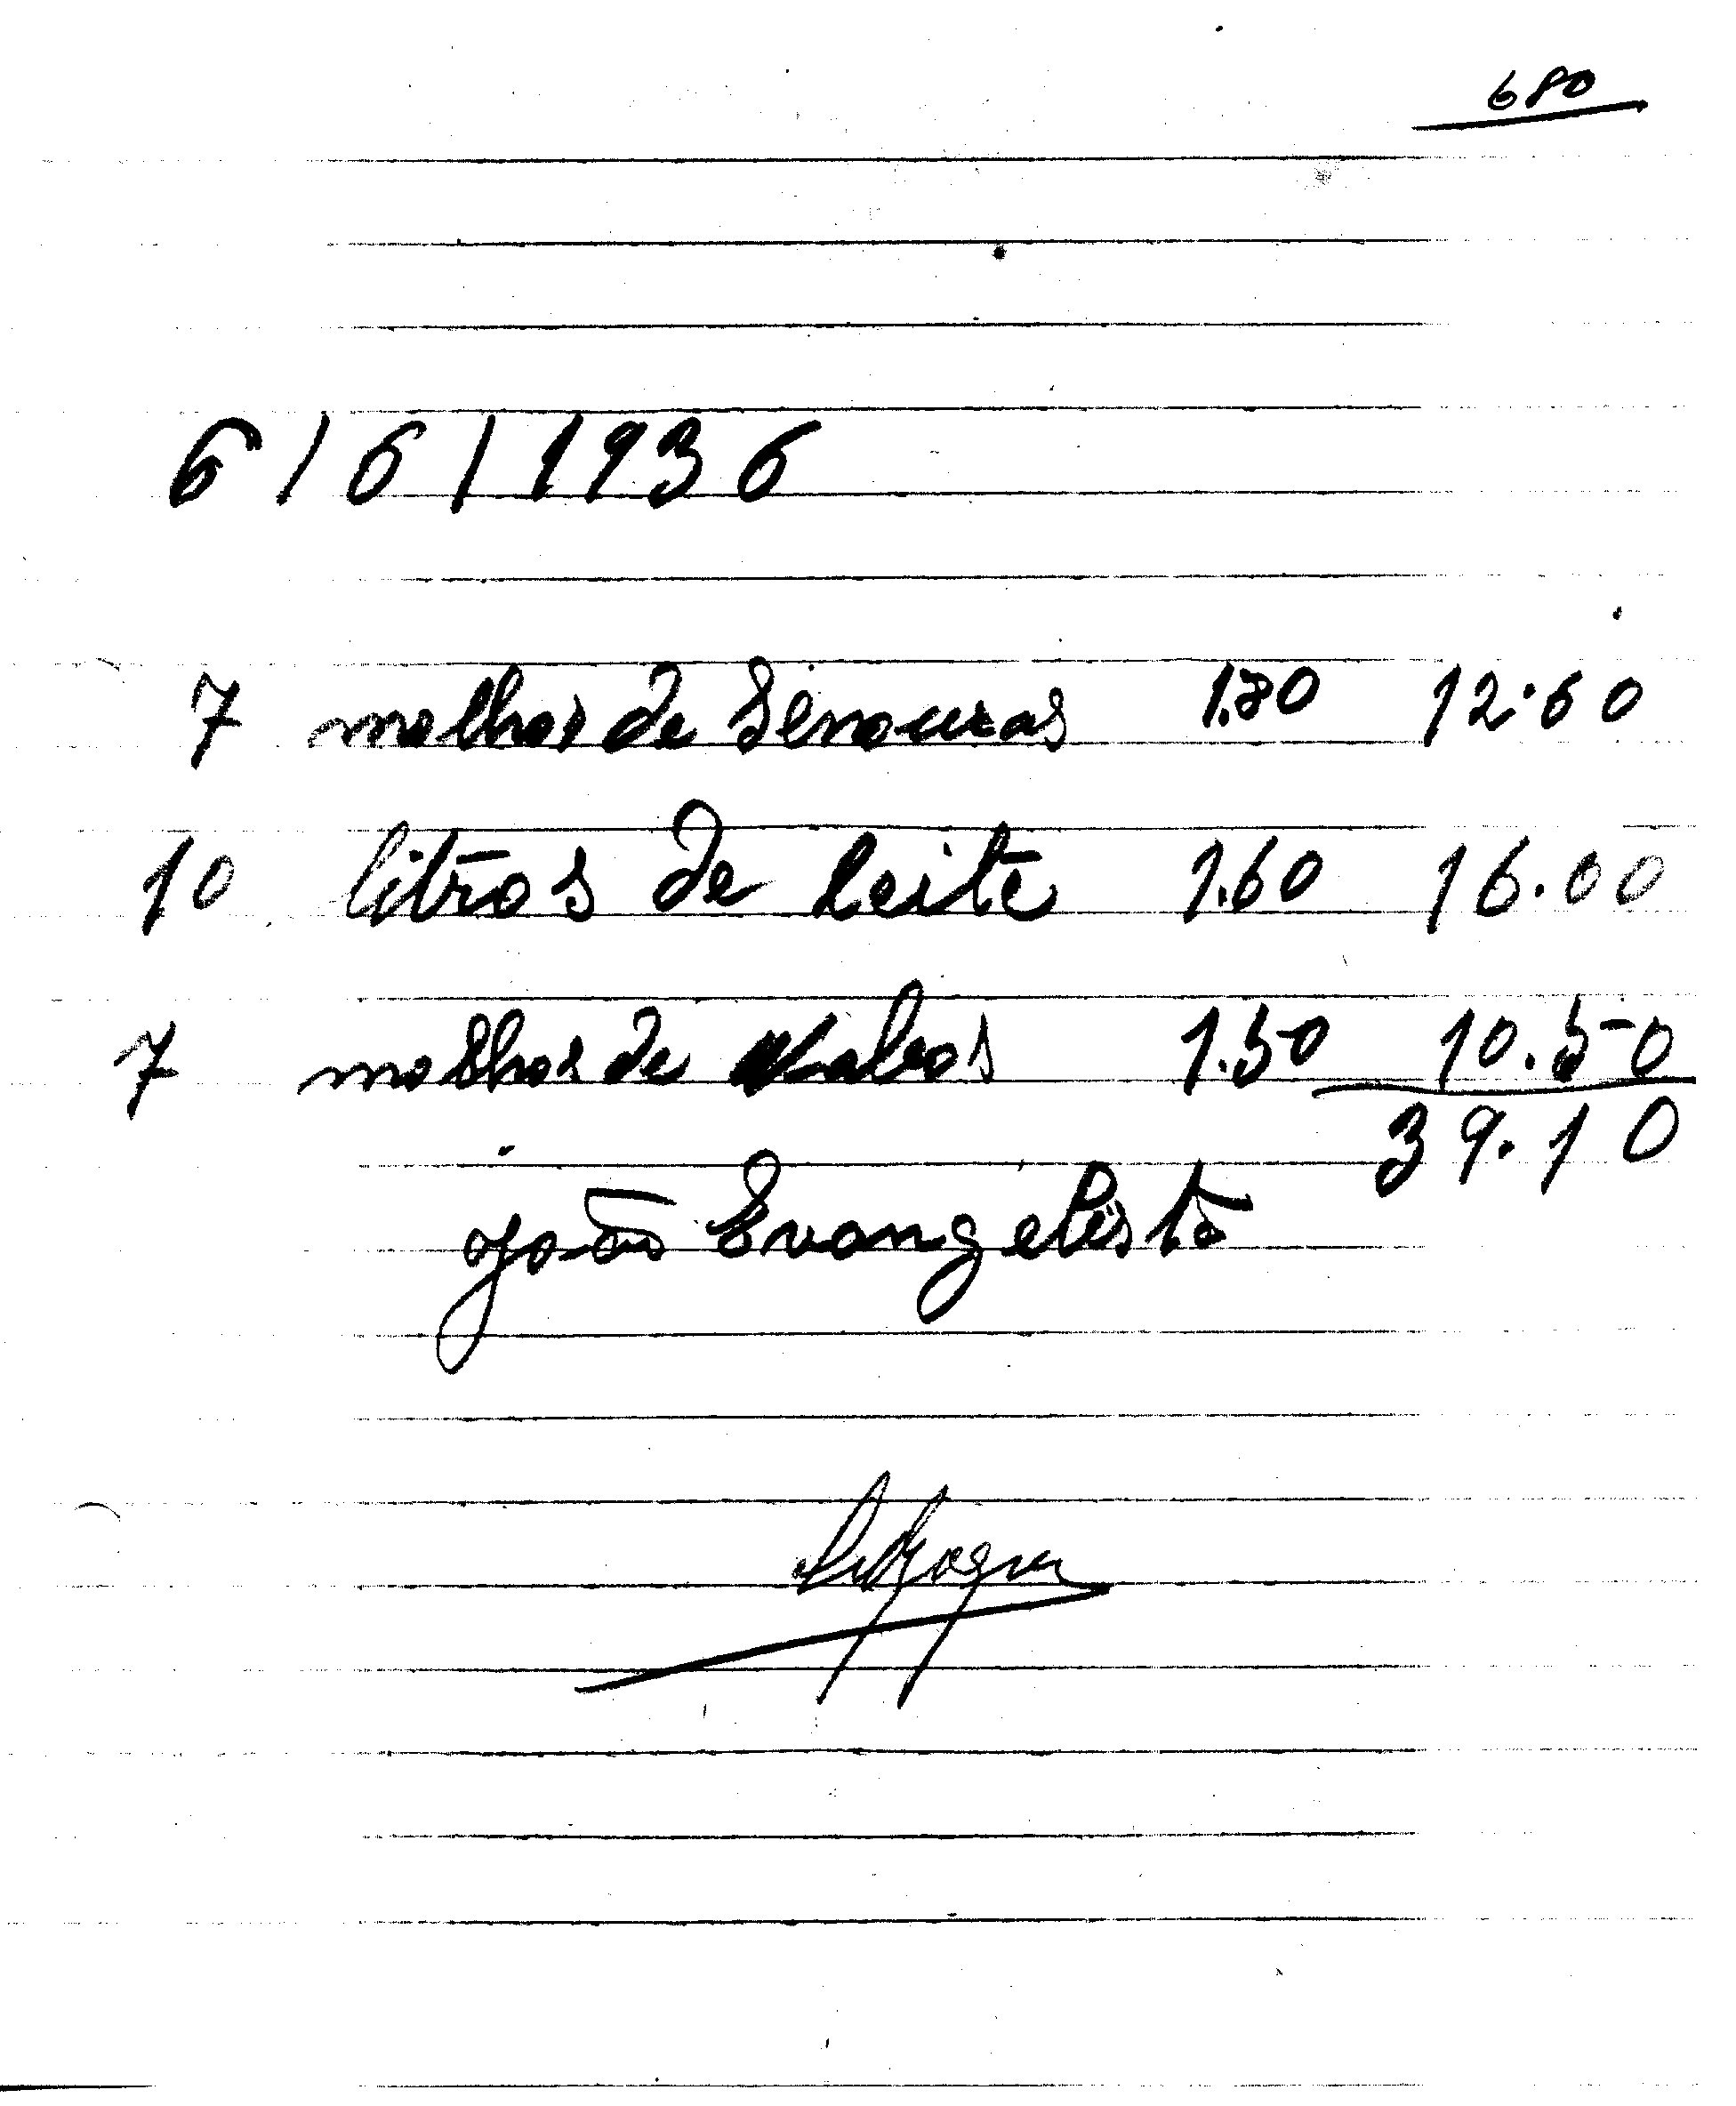 680
6/6/1936
7 molhos de Senouras 1.80 12.60
10 litros de leite 1.60 16.00
7 molhos de nabos 1.50 10.50
39.10
João Evangelista